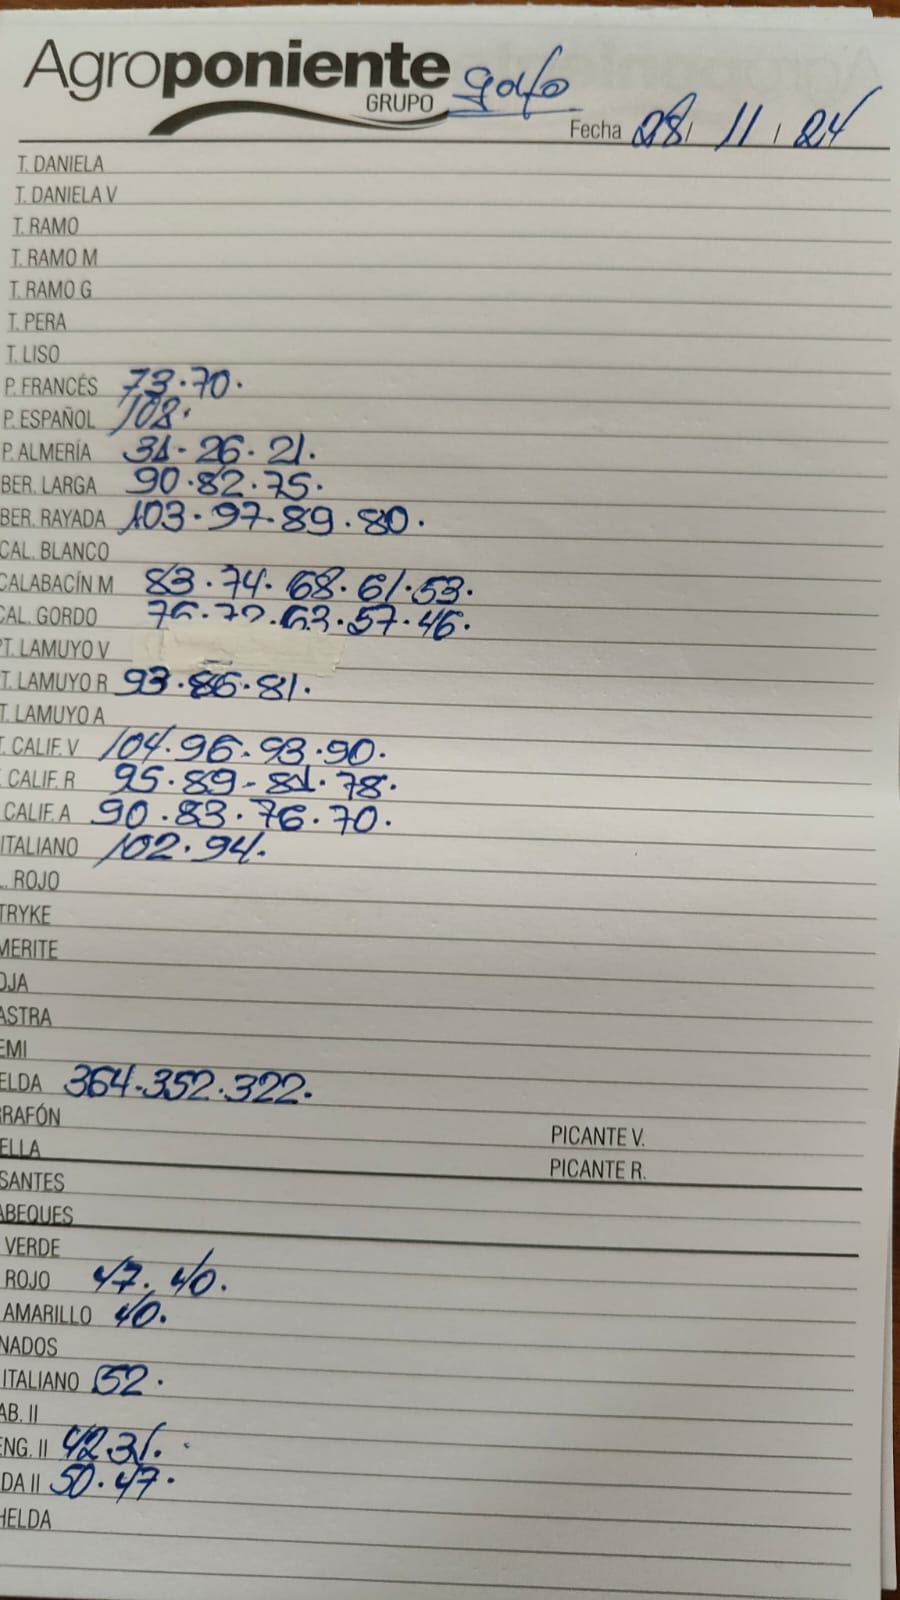 Agroponiente
GRUPO
galo
Fecha 28/ 11 / 24
T. DANIELA
T. DANIELA V
T. RAMO
T. RAMO M
T. RAMO G
T. PERA
T. LISO
P. FRANCÉS 73.70.
P. ESPAÑOL 108.
P. ALMERÍA 31. 26. 21.
BER. LARGA 90.82.75.
BER. RAYADA 103. 97. 89. 80.
CAL. BLANCO
CALABACÍN M 83.74. 68. 61.53.
CAL. GORDO 57.46.
T. LAMUYO V
T. LAMUYO R 93.86.81.
T. LAMUYO A
T. CALIF. V 104.96.93.90.
CALIF. R 95.89-81.78.
CALIF. A 90.83.76.70.
ITALIANO 102.94.
. ROJO
TRYKE
MERITE
OJA
ASTRA
EMI
ELDA 364.352.322.
RRAFÓN
PICANTE V.
ELLA
PICANTE R.
SANTES
ABEQUES
VERDE
ROJO 47. 40.
AMARILLO 40.
NADOS
ITALIANO 52.
AB. II
ENG. II 42 31.
DA II 50.47.
HELDA